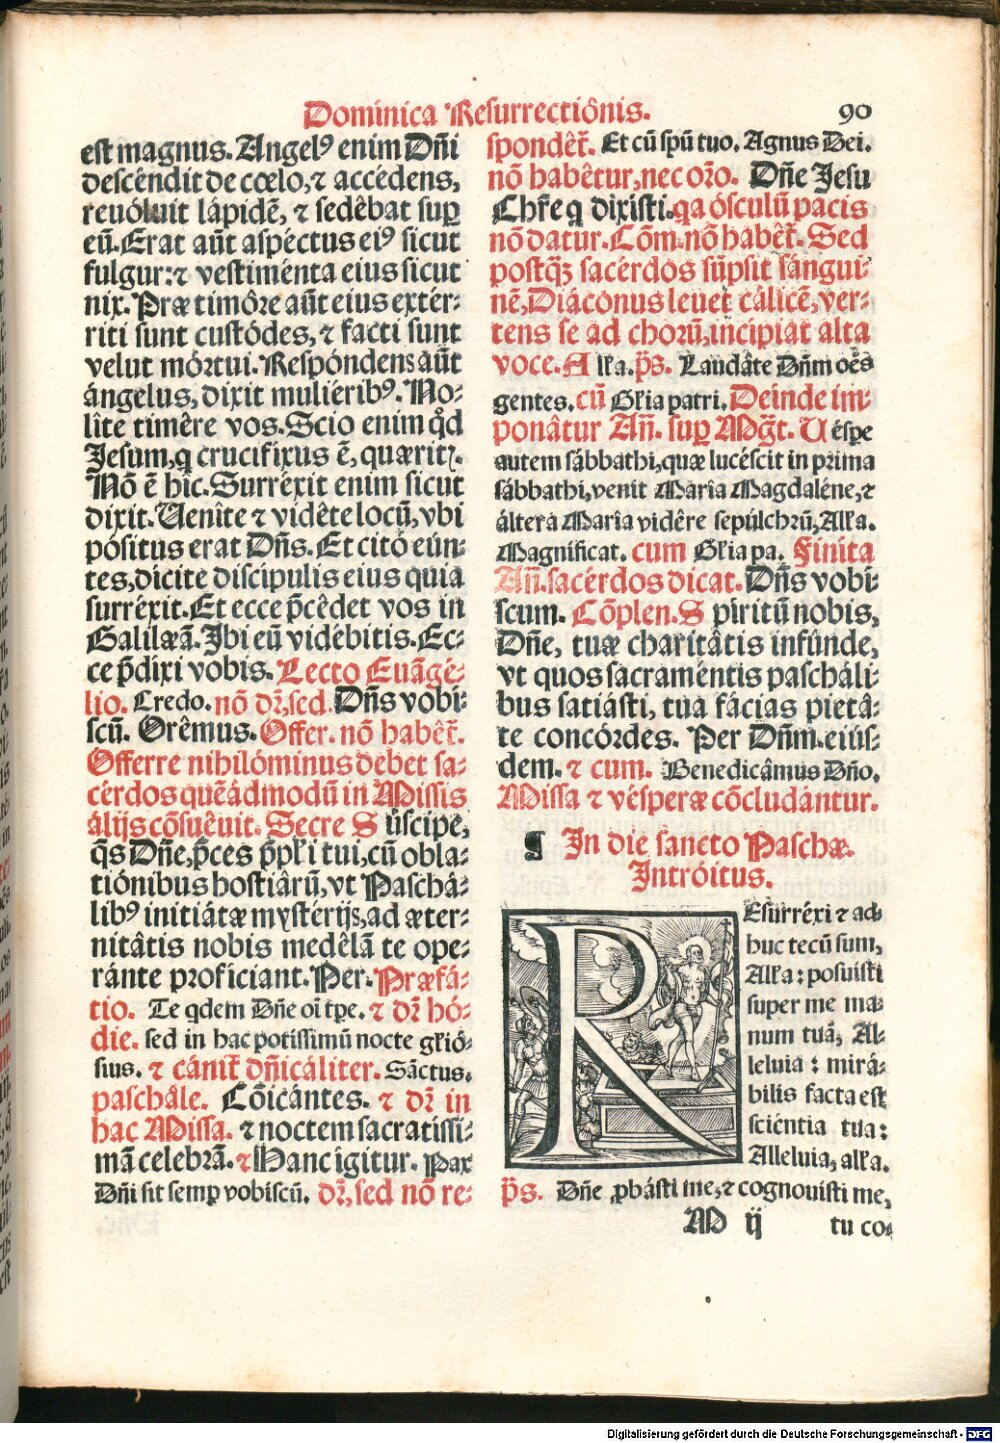 Dominica Resurrectiônis.
90
est magnus. Angelꝰ enim Dñi
descêndit de cœlo, ⁊ accédens,
revóluit lápidē, ⁊ sedêbat suꝑ
eū. Erat aūt aspéctus eiꝰ sicut
fulgur: ⁊ vestiménta eius sicut
nix. Præ timôre aūt eius extér-
riti sunt custódes, ⁊ facti sunt
velut mórtui. Respóndens aūt
ángelus, dixit muliéribꝰ. No-
lîte timêre vos. Scio enim qd̄
Jesum, q crucifixus ē, quæritꝭ.
Nō ē hîc. Surréxit enim sicut
dixit. Venîte ⁊ vidête locū, vbi
pósitus erat Dñs. Et citò eún-
tes, dícite discípulis eius quia
surréxit. Et ecce p̄cêdet vos in
Galilæā. Ibi eū vidébitis. Ec-
ce p̄dixi vobis. Lecto Euāgé-
lio. Credo. nō dr̄, sed. Dñs vobi-
scū. Orêmus. Offer. nō habēt̄.
Offerre nihilóminus debet sa-
cérdos quēádmodū in Missis
álijs cōsuêuit. Secre Súscipe,
q̄s Dñe, p̄ces p̄płi tui, cū obla-
tiónibus hostiârū, vt Paschá-
libꝰ initiátæ mystérijs, ad æter-
nitâtis nobis medêlā te ope-
ránte profíciant. Per. Præfá-
tio. Te qdem Dñe oī tꝑe. ⁊ dr̄ hó-
die. sed in hac potíssimū nocte głió-
sius. ⁊ cánit̄ dñicáliter. Sāctus.
paschâle. Cōicántes. ⁊ dr̄ in
hac Missa. ⁊ noctem sacratíssi-
mā celebrā. ⁊ Hanc ígitur. Pax
Dñi sit semꝑ vobíscū. dr̄, sed nō re-
spondêt̄. Et cū spū tuo. Agnus Dei.
nō habêtur, nec oro. Dñe Jesu
Chr̄e q dixísti. qa ósculū pacis
nō datur. Cōm. nō habēt̄. Sed
postꝗ̄ sacérdos sūpsit sángui-
nē, Diáconus leuet cálicē, ver-
tens se ad chorū, incípiat alta
voce. Ałła. p̄s. Laudâte Dñm oēs
gentes. cū Głia patri. Deinde im-
ponâtur Añ. suꝑ Mg̃t. Véspe
autem sábbathi, quæ lucéscit in prima
sábbathi, venit María Magdaléne, ⁊
áltera María vidêre sepúlchrū, Ałła.
Magníficat. cum Głia pa. Finita
Añ. sacérdos dicat. Dñs vobi-
scum. Cōplen. Spíritū nobis,
Dñe, tuæ charitâtis infúnde,
vt quos sacraméntis pascháli-
bus satiásti, tua fácias pietâ-
te concórdes. Per Dñm. eiús-
dem. ⁊ cum. Benedicâmus Dño.
Missa ⁊ vésperæ cōcludántur.
¶ In die sancto Paschæ.
Intróitus.
Resurréxi ⁊ ad-
huc tecū sum,
Ałła: posuísti
super me ma-
num tuā, Al-
leluia: mirá-
bilis facta est
sciéntia tua:
Alleluia, ałła.
p̄s. Dñe ꝓbásti me, ⁊ cognouísti me,
M ij
tu co-
Digitalisierung gefördert durch die Deutsche Forschungsgemeinschaft - DFG